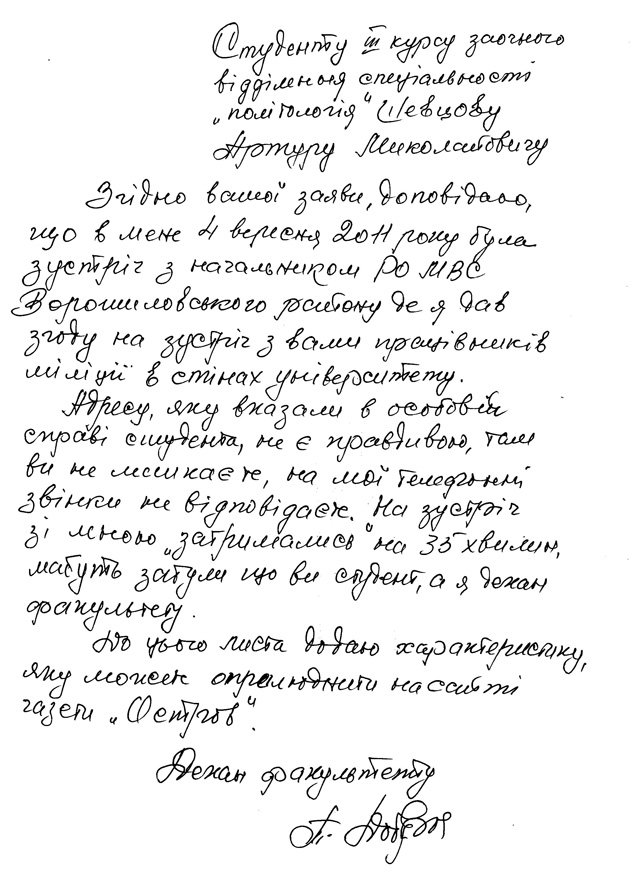 Студенту III курсу заочного
відділення спеціальності
"політологія" Шевцову
Артуру Миколайовичу
Згідно вашої заяви, доповідаю,
що в мене 4 вересня 2011 року була
зустріч з начальником РО МВС
Ворошиловського району де я дав
згоду на зустріч з вами працівників
міліції в стінах університету.
Адресу, яку вказали в особовій
справі студента, не є правдивою, там
ви не мешкаєте, на мої телефонні
звінки не відповідаєте. На зустріч
зі мною "затримались" на 35 хвилин,
мабуть забули що ви студент, а я декан
факультету.
До цього листа додаю характеристику,
яку можете оприлюднити на сайті
газети "Остров".
Декан факультету